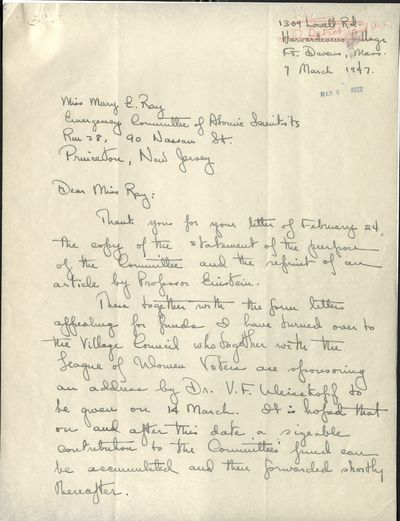 1309 Lowell Rd.
Harvardevens Village
Ft. Devens, Mass.
7 March 1947.
MAR RECD
Miss Mary E. Ray
Emergency Committee of Atomic Scientists
Rm 28, 90 Nassau St.
Princeton, New Jersey
Dear Miss Ray:
Thank you for your letter of February 24,
the copy of the statement of the purpose
of the Committee and the reprint of an
article by Professor Einstein.
These together with the form letters
appealing for funds I have turned over to
the Village Council who together with the
League of Women Voters are sponsoring
an address by Dr. V. F. Weisskoff to
be given on 14 March. It is hoped that
on and after this date a sizeable
contribution to the Committee's fund can
be accumulated and then forwarded shortly
thereafter.